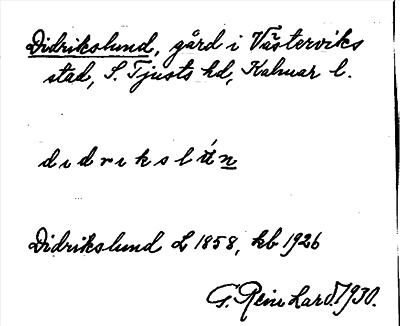 Didrikslund, gård i Västerviks
stad, S. Tjusts hd, Kalmar l.
didrikslún
Didrikslund L 1858, kb 1926
G. Reinhard. 1930.